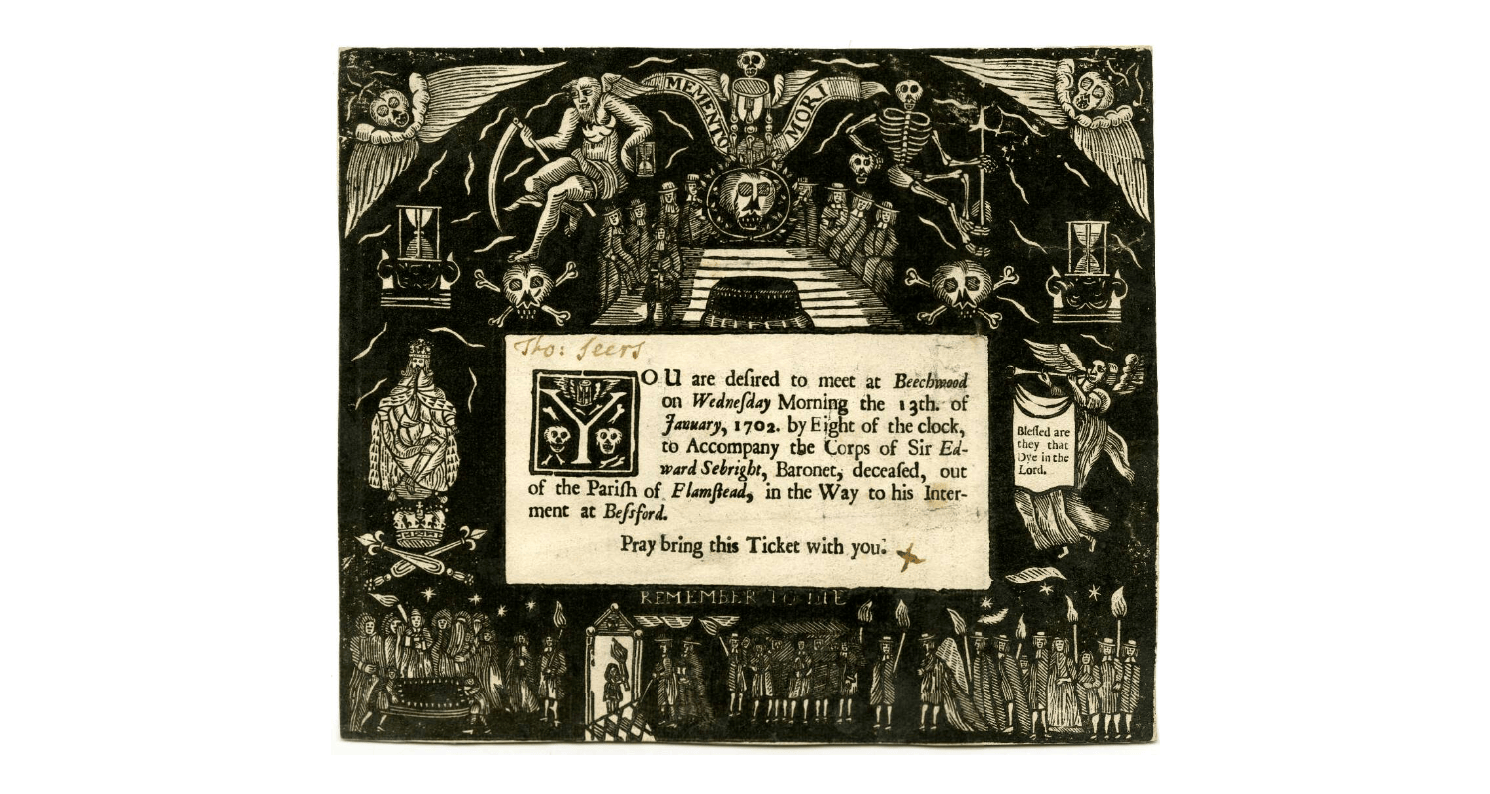 MEMENTO MORI
Tho: Seers
YOU are deſired to meet at Beechwood
on Wedneſday Morning the 13th. of
January, 1702. by Eight of the clock,
to Accompany the Corps of Sir Ed-
ward Sebright, Baronet, deceaſed, out
of the Pariſh of Flamſtead, in the Way to his Inter-
ment at Beſsford.
Pray bring this Ticket with you.
Bleſſed are
they that
Dye in the
Lord.
REMEMBER TO DIE